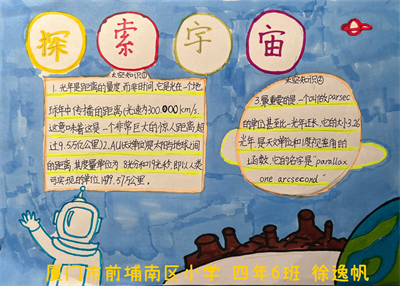 探索宇宙
太空知识①
1.光年是距离的量度,而非时间,它是光在一个地
球年中传播的距离(光速为300,000km/s.
这意味着这是一个非常巨大的惊人距离:超
过9.5万亿公里)2.AU天文单位是太阳与地球之间
的距离,其度量单位为8光分和19光秒,即以人类
可实现的单位149.57万公里.
太空知识②
3.最重要的是一个叫做parsec
的单位甚至比一光年还长,它约大小3.26
光年,是天文单位和1度视差角的
函数,它的名字是"parallax
one arcsecond"
厦门市前埔南区小学 四年6班 徐逸帆